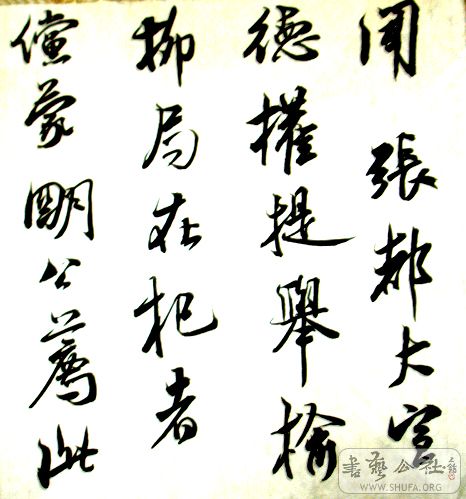 聞 張都大宣
德權提舉榆
柳局在杞者
儻蒙 明公薦此
書藝公社
WWW.SHUFA.ORG